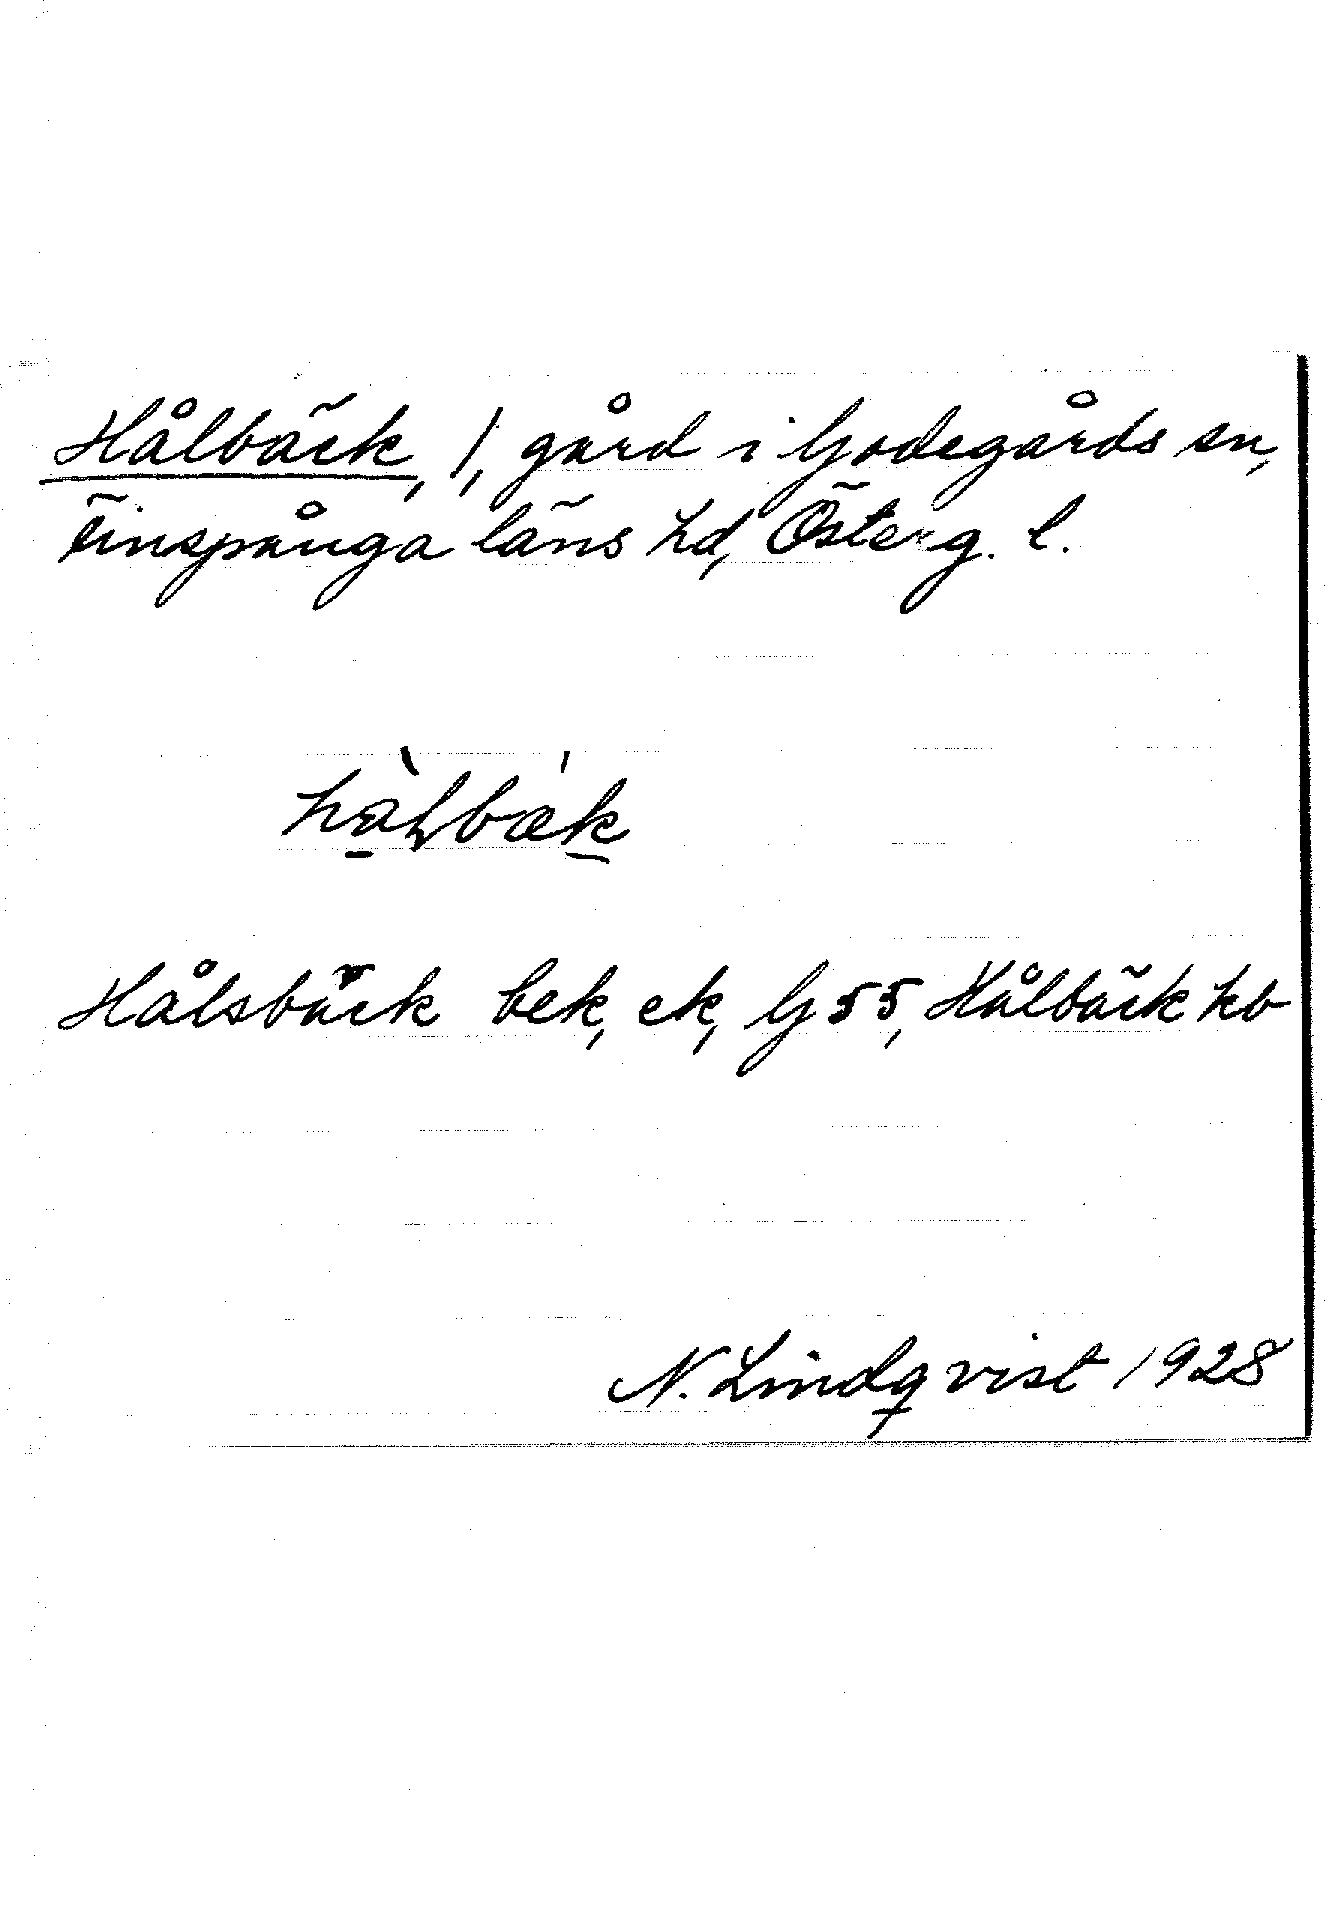 Hålbäck, 1, gård i Godegårds sn,
Finspånga läns hd, Österg. l.
hålbäk
Hålsbäck bek, ek, G 55, Hålbäck hb
N. Lindqvist 1928